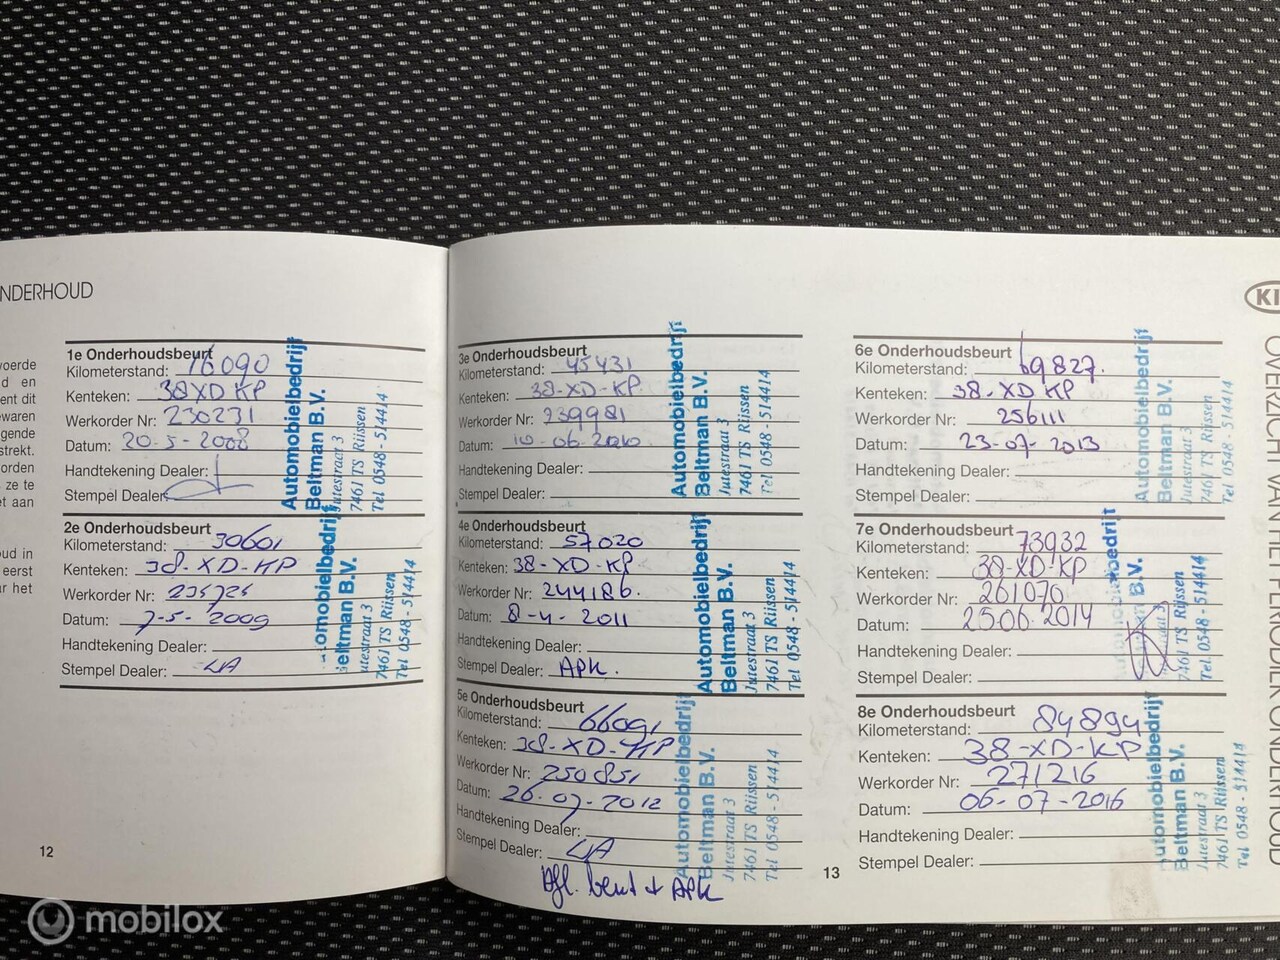 NDERHOUD
voerde
d en
ent dit
waren
gende
strekt.
orden
ze te
et aan
oud in
eerst
ar het
1e Onderhoudsbeurt
Kilometerstand: 16090
Kenteken: 38 XD KP
Werkorder Nr: 230231
Datum: 20-5-2008
Handtekening Dealer:
Stempel Dealer:
Automobielbedrijf
Beltman B.V.
Jutestraat 3
7461 TS Rijssen
Tel 0548 - 514414
2e Onderhoudsbeurt
Kilometerstand: 30601
Kenteken: 38-XD-KP
Werkorder Nr:
Datum: 7-5-2009
Handtekening Dealer:
Stempel Dealer:
utomobielbedrijf
Beltman B.V.
Jutestraat 3
7461 TS Rijssen
Tel 0548 - 514414
12
3e Onderhoudsbeurt
Kilometerstand: 45431
Kenteken: 38-XD-KP
Werkorder Nr: 239981
Datum: 10-06-2010
Handtekening Dealer:
Stempel Dealer:
Automobielbedrijf
Beltman B.V.
Jutestraat 3
7461 TS Rijssen
Tel 0548 - 514414
4e Onderhoudsbeurt
Kilometerstand: 57020
Kenteken: 38-XD-KP
Werkorder Nr: 244186.
Datum: 8-4-2011
Handtekening Dealer:
Stempel Dealer: APK.
Automobielbedrijf
Beltman B.V.
Jutestraat 3
7461 TS Rijssen
Tel 0548 - 514414
5e Onderhoudsbeurt
Kilometerstand: 66091
Kenteken: 38-XD-KP
Werkorder Nr: 250851
Datum: 26-07-2012
Handtekening Dealer:
Stempel Dealer:
Automobielbedrijf
Beltman B.V.
Jutestraat 3
7461 TS Rijssen
Tel 0548 - 514414
beurt + APK
6e Onderhoudsbeurt
Kilometerstand: 69827.
Kenteken: 38-XD KP
Werkorder Nr: 256111
Datum: 23-07-2013
Handtekening Dealer:
Stempel Dealer:
Automobielbedrijf
Beltman B.V.
Jutestraat 3
7461 TS Rijssen
Tel 0548 - 514414
7e Onderhoudsbeurt
Kilometerstand: 73932
Kenteken: 38-XD-KP
Werkorder Nr: 261070
Datum: 25.06.2014
Handtekening Dealer:
Stempel Dealer:
B.V.
7461 TS Rijssen
Tel. 0548 - 514414
8e Onderhoudsbeurt
Kilometerstand: 84894
Kenteken: 38-XD-KP
Werkorder Nr: 271216
Datum: 06-07-2016
Handtekening Dealer:
Stempel Dealer:
Automobielbedrijf
Beltman B.V.
Jutestraat 3
7461 TS Rijssen
Tel 0548 - 514414
13
KI
OVERZICHT VAN HET PERIODIEK ONDERHOUD
mobilox